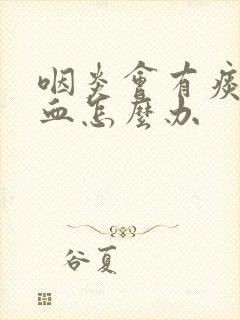 咽炎會有痰
血怎麼办
谷夏